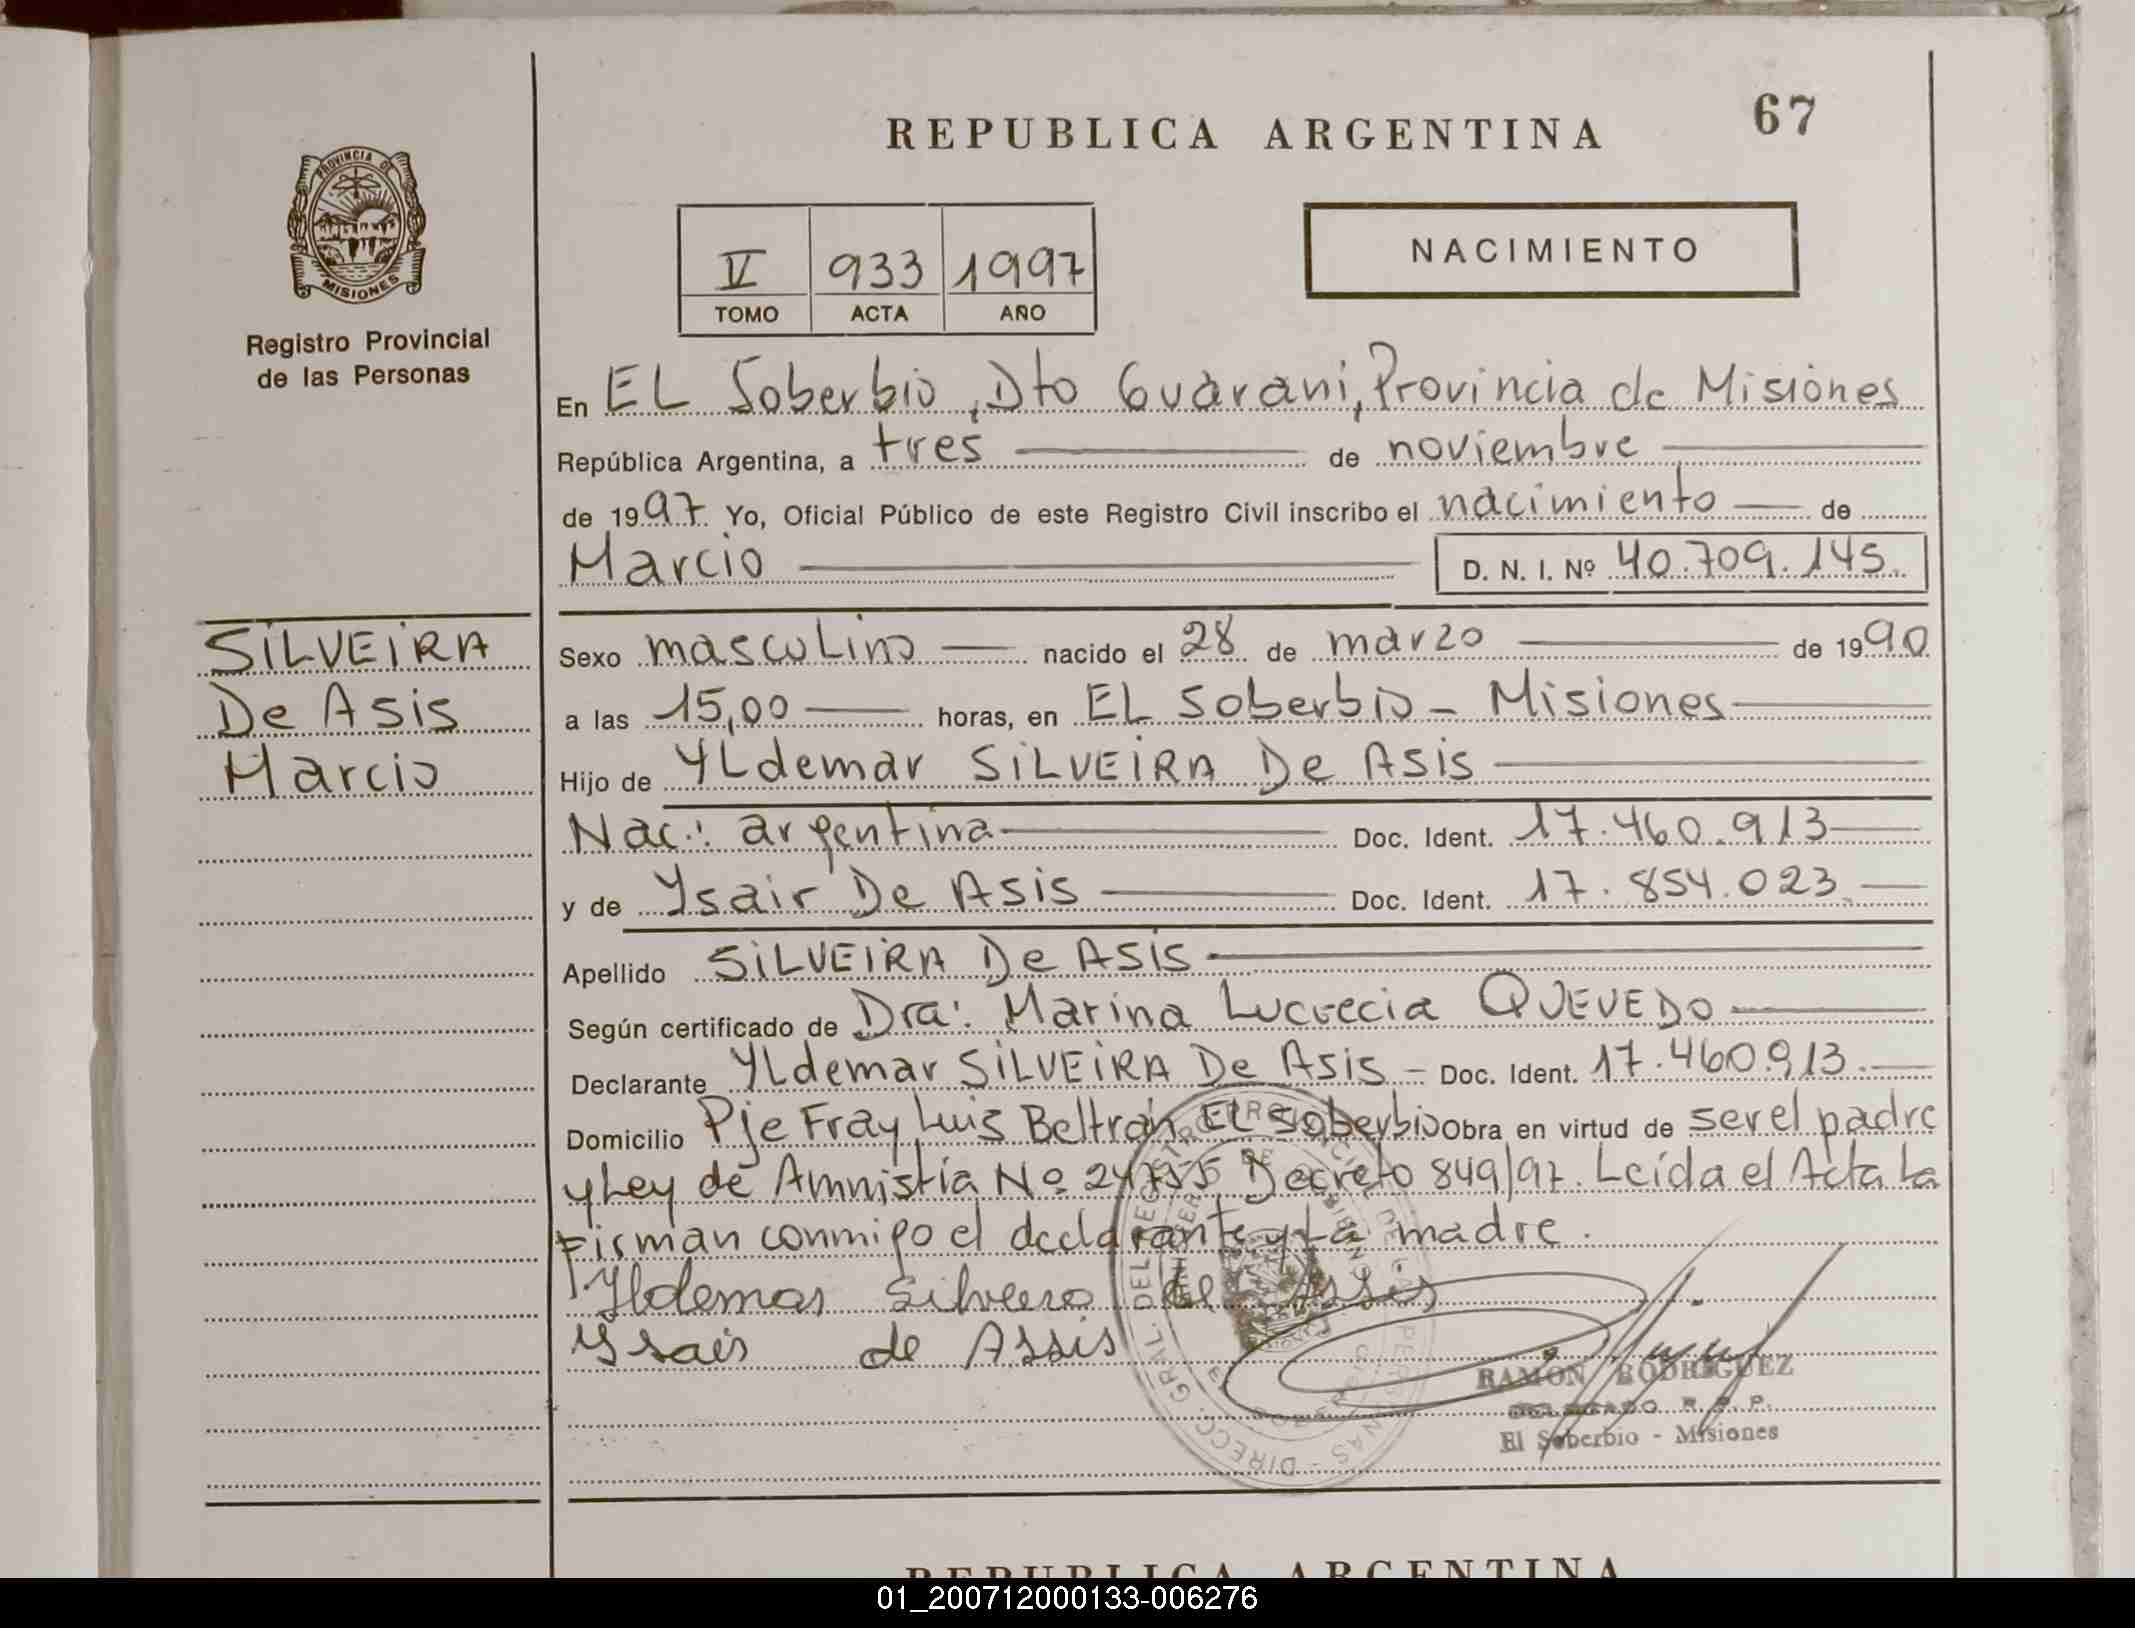 67
REPUBLICA ARGENTINA
PROVINCIA DE
MISIONES
Registro Provincial
de las Personas
V 933 1997
TOMO ACTA AÑO
NACIMIENTO
En EL Soberbio, Dto Guarani, Provincia de Misiones
República Argentina, a tres de noviembre
de 1997. Yo, Oficial Público de este Registro Civil inscribo el nacimiento de
Marcio D. N. I. Nº 40.709.145.
SILVEIRA
De Asis
Marcio
Sexo masculino nacido el 28 de marzo de 1990
a las 15,00 horas, en EL Soberbio - Misiones
Hijo de YLdemar SILVEIRA De Asis
Nac.: argentina Doc. Ident. 17.460.913
y de Ysair De Asis Doc. Ident. 17.854.023
Apellido SILVEIRA De Asis
Según certificado de Dra: Marina Lucrecia QUEVEDO
Declarante YLdemar SILVEIRA De Asis - Doc. Ident. 17.460.913.
Domicilio Pje Fray Luis Beltrán EL Soberbio Obra en virtud de ser el padre
y Ley de Amnistia Nº Decreto 849/97. Leída el Acta La
Firman conmigo el declarante y La madre.
Ildemar de Assis
de Assis
RAMON RODRIGUEZ
DELEGADO R. P. P.
El Soberbio - Misiones
REPUBLICA ARGENTINA
01_200712000133-006276